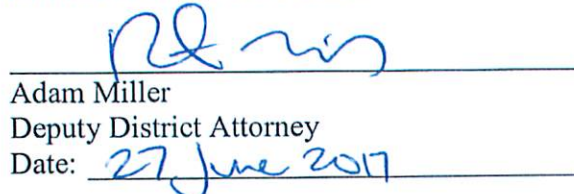 Adam Miller
Deputy District Attorney
Date: 27 June 2017